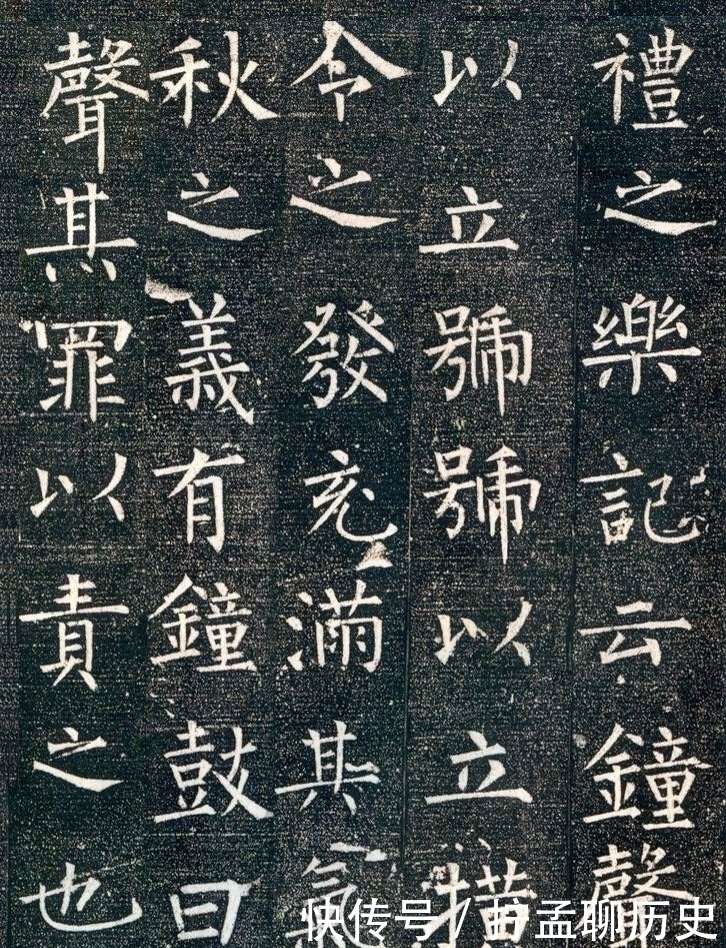 禮之樂記云鐘聲
以立號號以立
令之發充滿其氣
秋之義有鐘鼓曰
聲其罪以責之也
快传号 / 护孟聊历史